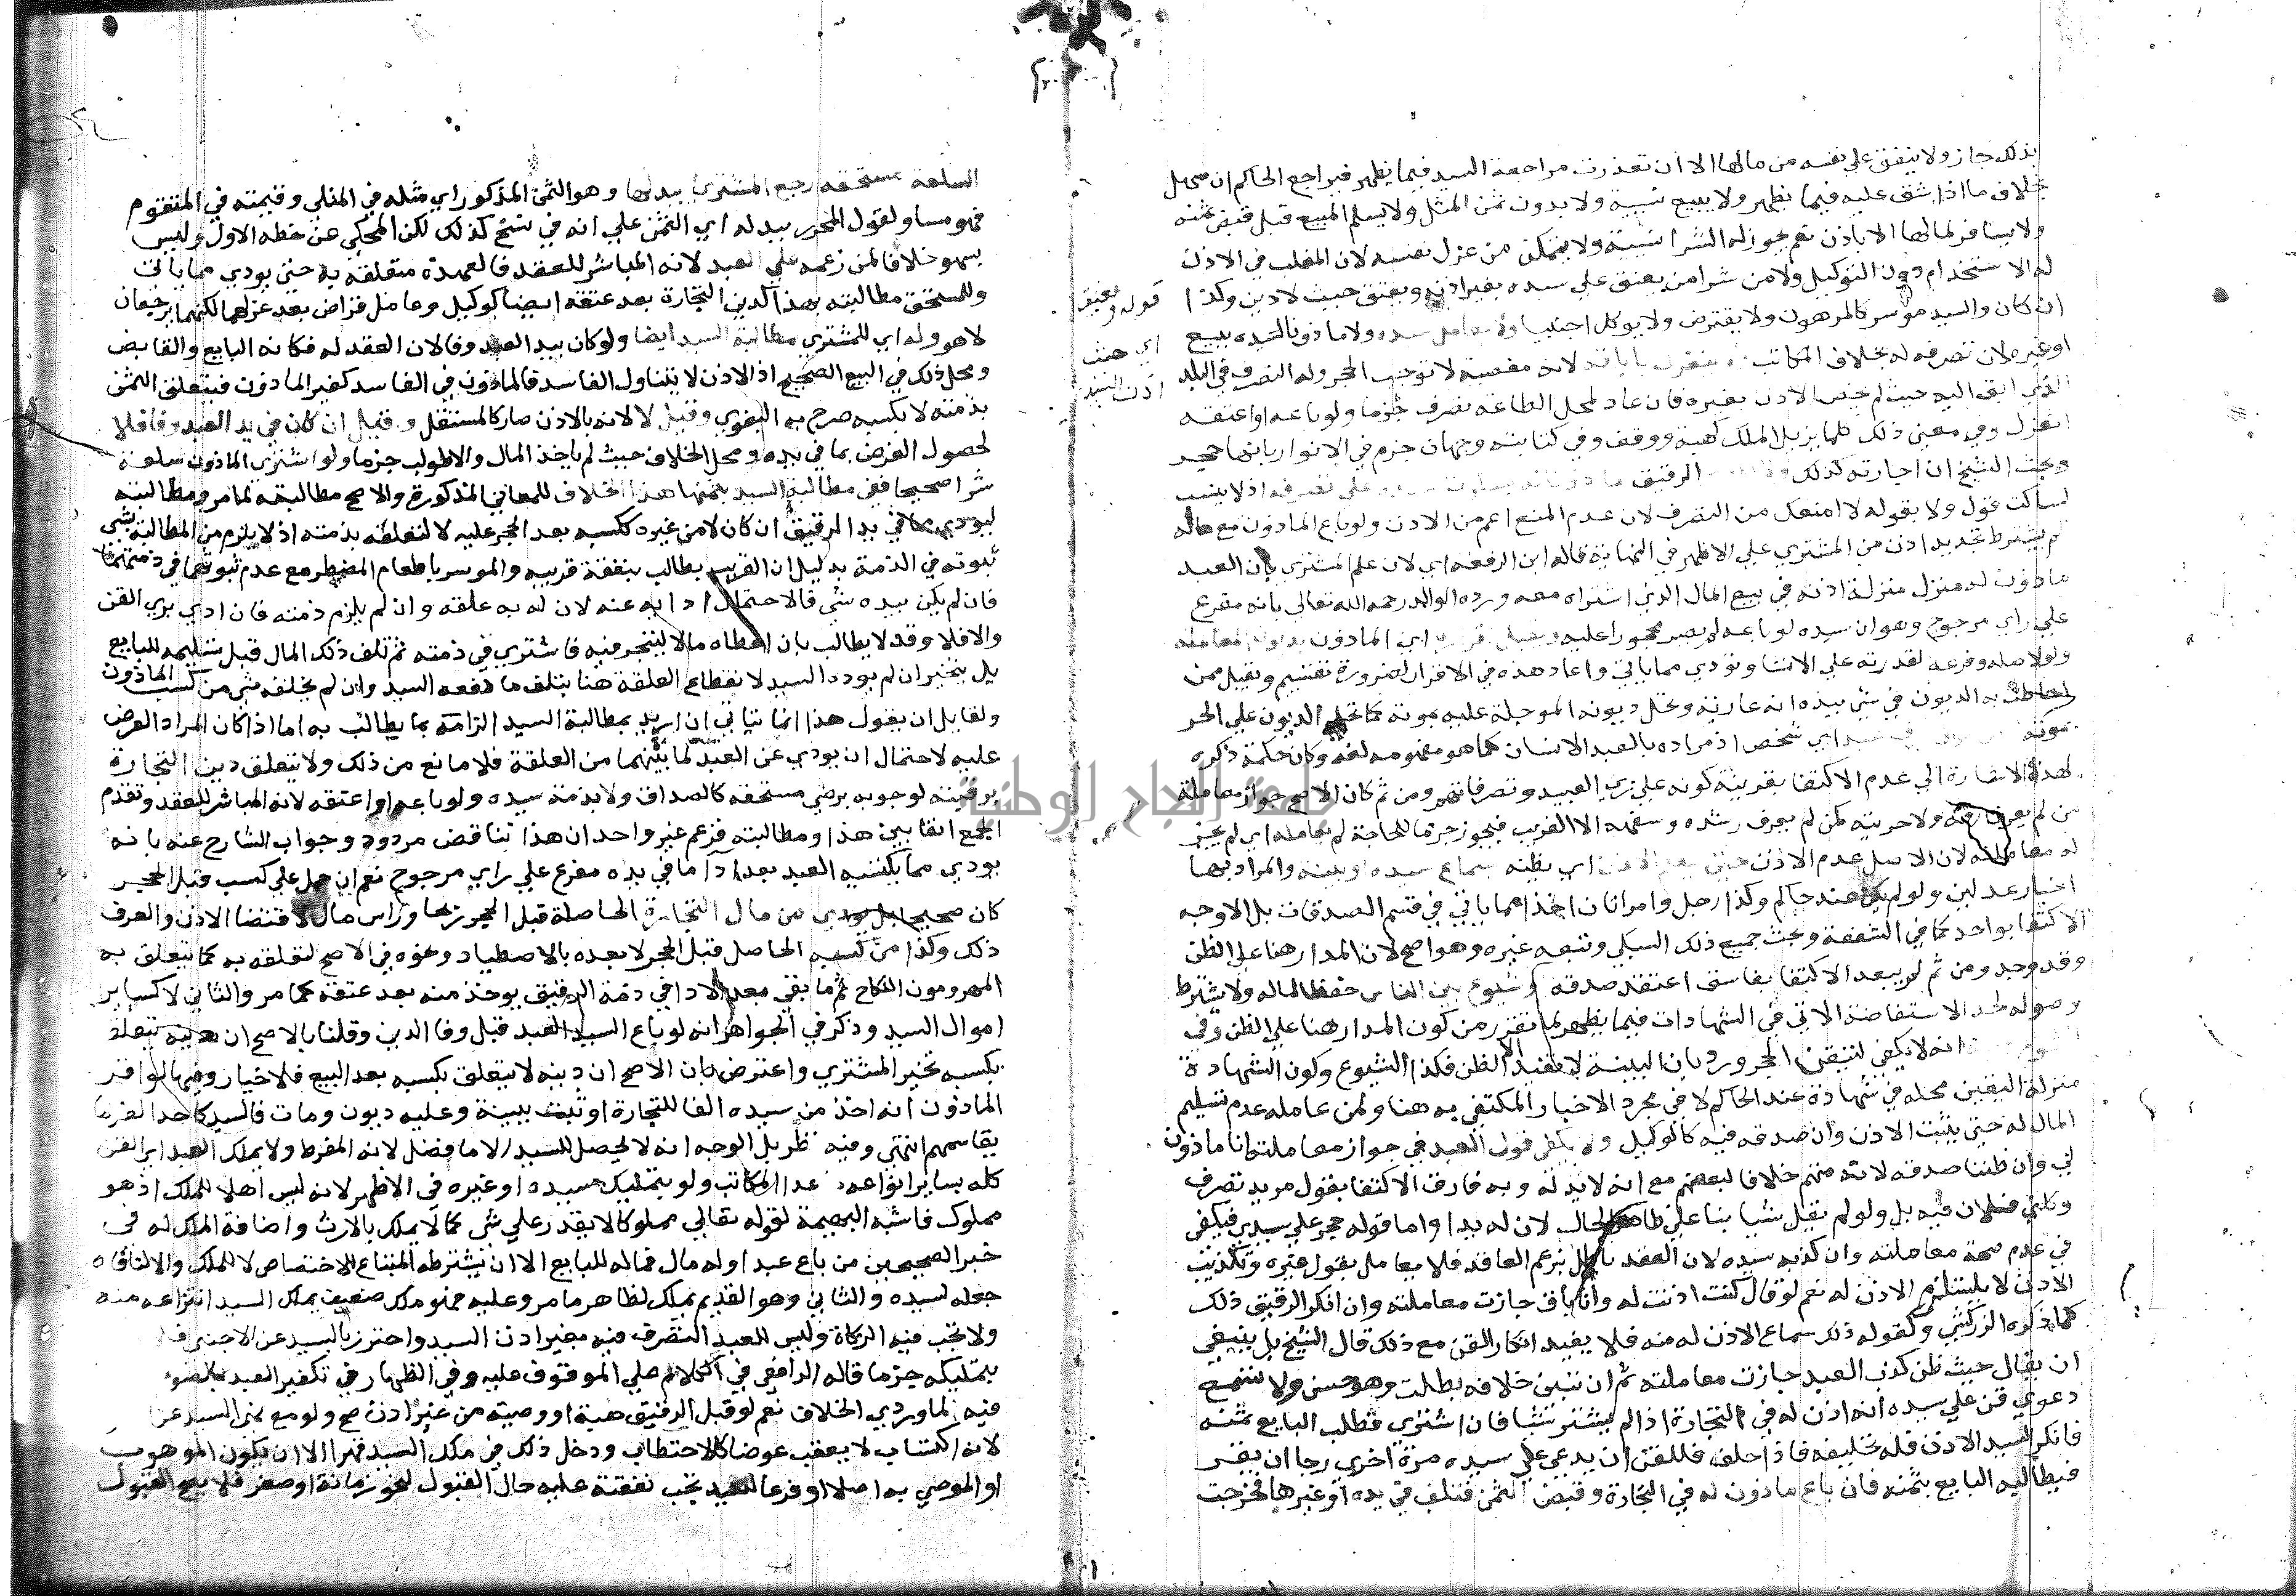 بذلك جاز ولا ينفق علي نفسه من مالها الا ان تعذرت مراجعة السيد فيما يظهر فيراجع الحاكم ان سهل
بخلاف ما اذا شق عليه فيما يظهر ولا يبيع نسية ولا بدون ثمن المثل ولا يسلم المبيع قبل قبض ثمنه
ولا يسافر لمالها الا باذن نعم يجوز له الشرا نسية ولا يتمكن من عزل نفسه لان المغلب في الاذن
له الاستخدام دون التوكيل ولا من شرا من يعتق علي سيده بغير اذنه ويعتق حيث لا دين وكذا
ان كان والسيد موسر كالمرهون ولا يقترض ولا يوكل اجنبيا ولا يعامل سيده ولا ماذونا لسيده ببيع
او غيره لان تصرفه له بخلاف المكاتب ولا ينعزل باباقه لانه معصية لا توجب الحجر وله التصرف في البلد
الذي ابق اليه حيث لم يخص الاذن بغيره فان عاد لمحل الطاعة تصرف جزما ولو باعه او اعتقه
انعزل وفي معني ذلك كلما يزيل الملك كهبة ووقف وفي كتابته وجهان جزم في الانوار بانها حجر
وبحث الشيخ ان اجارته كذلك الرقيق ماذونا له بسكوت سيده علي تصرفه اذ لا ينسب
لساكت قول ولا بقوله لا امنعك من التصرف لان عدم المنع اعم من الاذن ولو باع الماذون مع ماله
لم يشترط تجديد اذن من المشتري علي الاظهر في النهاية قاله ابن الرفعة اي لان علم المشتري بان العبد
ماذون له منزل منزلة اذنه في بيع المال الذي اشتراه معه ورده الوالد رحمه الله تعالي بانه مفرع
علي راي مرجوح وهو ان سيده لو باعه لم يصر محجورا عليه ويقبل اي الماذون بديون المعاملة
ولو لاصله وفرعه لقدرته علي الانشا وتودي مما ياتي واعاد هذه في الاقرار لضرورة تقسيم وتقبل ممن
احاطت به الديون في شي بيده انه عارية وتحل ديونه الموجلة عليه بموته كما تحل الديون علي الحر
بموته اي شخص اذ مراده بالعبد الانسان كما هو مفهومه لغة وكان حكمة ذكره
لهذه الاشارة الي عدم الاكتفا بقرينة كونه علي زي العبيد وتصرفاتهم ومن ثم كان الاصح جواز معاملة
من لم يعرف رقه ولا حريته كمن لم يعرف رشده وسفهه الا الغريب فيجوز جزما للحاجة لم يعامله اي لم يجز
له معاملته لان الاصل عدم الاذن حتي يعلم الاذن اي يظنه بسماع سيده او بينة والمراد بها
اخبار عدلين ولو لم يكن عند حاكم وكذا رجل وامراتان اخذا مما ياتي في قسم الصدقات بل الاوجه
الاكتفا بواحد كما في الشفعة وبحث جميع ذلك السبكي وتبعه غيره وهو اصح لان المدار هنا علي الظن
وقد وجد ومن ثم لم يبعد الاكتفا بفاسق اعتقد صدقه وشيوع بين الناس حفظا لماله ولا يشترط
وصوله لحد الاستفاضة الاتي في الشهادات فيما يظهر لما تقرر من كون المدار هنا علي الظن وفي
انه لا يكفي لتيقن الحجر ورد بان البينة لا تفيد الا الظن فكذا الشيوع وكون الشهادة
منزلة اليقين محله في شهادة عند الحاكم لا في مجرد الاخبار المكتفي به هنا ولمن عامله عدم تسليم
المال له حتي يثبت الاذن وان صدقه فيه كالوكيل ولا يكفي قول العبد في جواز معاملته انا ماذون
لي وان ظننا صدقه لانه متهم خلافا لبعضهم مع انه لا يد له وبه فارق الاكتفا بقول مريد تصرف
وكلني فلان فيه بل ولو لم يقل شيا بنا علي ظاهر الحال لان له يدا واما قوله حجر علي سيدي فيكفي
في عدم صحة معاملته وان كذبه سيده لان العقد باطل بزعم العاقد فلا يعامل بقول غيره وتكذيب
الاذن لا يستلزم الاذن له نعم لو قال كنت اذنت له وانا باق جازت معاملته وان انكر الرقيق ذلك
كما ذكره الزركشي وكقوله ذلك سماع الاذن له منه فلا يفيد انكار القن مع ذلك قال الشيخ بل ينبغي
ان يقال حيث ظن كذب العبد جازت معاملته ثم ان تبين خلافه بطلت وهو حسن ولا تسمع
دعوي قن علي سيده انه اذن له في التجارة اذا لم يشتر شيا فان اشتري فطلب البايع ثمنه
فانكر السيد الاذن فله تحليفه فاذا حلف فللقن ان يدعي علي سيده مرة اخري رجا ان يقر
فيطالبه البايع بثمنه فان باع ماذون له في التجارة وقبض الثمن فتلف في يده او غيرها فخرجت
قوله ويعتق
اي حيث
اذن السيد
السلعة مستحقة رجع المشتري ببدلها وهو الثمن المذكور اي مثله في المثلي وقيمته في المتقوم
فهو مساو لقول المحرر ببدله اي الثمن علي انه في نسخ كذلك لكن المحكي عن خطه الاول وليس
بسهو خلافا لمن زعمه علي العبد لانه المباشر للعقد فالعهدة متعلقة به حتي يودي مما ياتي
وللمستحق مطالبته بهذا كدين التجارة بعد عتقه ايضا كوكيل وعامل قراض بعد عزلهما لكنهما يرجعان
لا هو وله اي للمشتري مطالبة السيد ايضا ولو كان بيد العبد وفا لان العقد له فكانه البايع والقابض
ومحل ذلك في البيع الصحيح اذ الاذن لا يتناول الفاسد فالماذون في الفاسد كغير الماذون فيتعلق الثمن
بذمته لا بكسبه صرح به البغوي وقيل لا لانه بالاذن صار كالمستقل وقيل ان كان في يد العبد وفا فلا
لحصول الغرض بما في يده ومحل الخلاف حيث لم ياخذ المال والا طولب جزما ولو اشتري الماذون سلعة
شرا صحيحا ففي مطالبة السيد بثمنها هذا الخلاف للمعاني المذكورة والاصح مطالبته لما مر ومطالبته
ليودي مما في يد الرقيق ان كان لا من غيره ككسبه بعد الحجر عليه لا لتعلقه بذمته اذ لا يلزم من المطالبة بشي
ثبوته في الذمة بدليل ان القريب يطالب بنفقة قريبه والموسر باطعام المضطر مع عدم ثبوتهما في ذمتهما
فان لم يكن بيده شي فالاحتمال ادايه عنه لان له به علقة وان لم يلزم ذمته فان ادي بري القن
والا فلا وقد لا يطالب بان اعطاه مالا ليتجر فيه فاشتري في ذمته ثم تلف ذلك المال قبل تسليمه للبايع
بل يتخير ان لم يودد السيد لانقطاع العلقة هنا بتلف ما دفعه السيد وان لم يخلفه شي من كسب الماذون
ولقايل ان يقول هذا انما ياتي ان اريد بمطالبة السيد الزامه بما يطالب به اما اذا كان المراد العرض
عليه لاحتمال ان يودي عن العبد لما بينهما من العلقة فلا مانع من ذلك ولا يتعلق دين التجارة
برقبته لوجوبه برضي مستحقه كالصداق ولا بذمة سيده ولو باعه او اعتقه لانه المباشر للعقد وتقدم
الجمع انفا بين هذا ومطالبته فزعم غير واحد ان هذا تناقض مردود وجواب الشارح عنه بانه
يودي مما يكتسبه العبد بعد ادا ما في يده مفرع علي راي مرجوح نعم ان حمل علي كسب قبل الحجر
كان صحيحا بل يودي من مال التجارة الحاصلة قبل الحجر ربحا وراس مال لاقتضا الاذن والعرف
ذلك وكذا من كسبه الحاصل قبل الحجر لا بعده بالاصطياد ونحوه في الاصح لتعلقه به كما يتعلق به
المهر ومون النكاح ثم ما بقي بعد الادا في ذمة الرقيق يوخذ منه بعد عتقه كما مر والثاني لا كساير
اموال السيد وذكر في الجواهر انه لو باع السيد العبد قبل وفا الدين وقلنا بالاصح ان دينه يتعلق
بكسبه تخير المشتري واعترض بان الاصح ان دينه لا يتعلق بكسبه بعد البيع فلا خيار وفيها لو اقر
الماذون انه اخذ من سيده الفا للتجارة او ثبت ببينة وعليه ديون ومات فالسيد كاحد الغرما
يقاسمهم انتهي وفيه نظر بل الوجه انه لا يحصل للسيد الا ما فضل لانه المفرط ولا يملك العبد اي القن
كله بساير انواعه عدا المكاتب ولو بتمليك سيده او غيره في الاظهر لانه ليس اهلا للملك اذ هو
مملوك فاشبه البهيمة لقوله تعالي مملوكا لا يقدر علي شي كما لا يملك بالارث واضافة الملك له في
خبر الصحيحين من باع عبدا وله مال فماله للبايع الا ان يشترطه المبتاع للاختصاص لا للملك والا لنافاه
جعله لسيده والثاني وهو القديم يملك لظاهر ما مر وعليه فهو ملك ضعيف يملك السيد انتزاعه منه
ولا تجب فيه الزكاة وليس للعبد التصرف فيه بغير اذن السيد واحترز بالسيد عن الاجنبي فلا
بتمليكه جزما قاله الرافعي في الكلام علي الموقوف عليه وفي الظهار في تكفير العبد بالصوم
فيه لماوردي الخلاف نعم لو قبل الرقيق هبة او وصية من غير اذن صح ولو مع نهي السيد عن
لانه اكتساب لا يعقب عوضا كالاحتطاب ودخل ذلك في ملك السيد قهرا الا ان يكون الموهوب
او الموصي به اصلا او فرعا للسيد تجب نفقته عليه حال القبول لنحو زمانة او صغر فلا يصح القبول